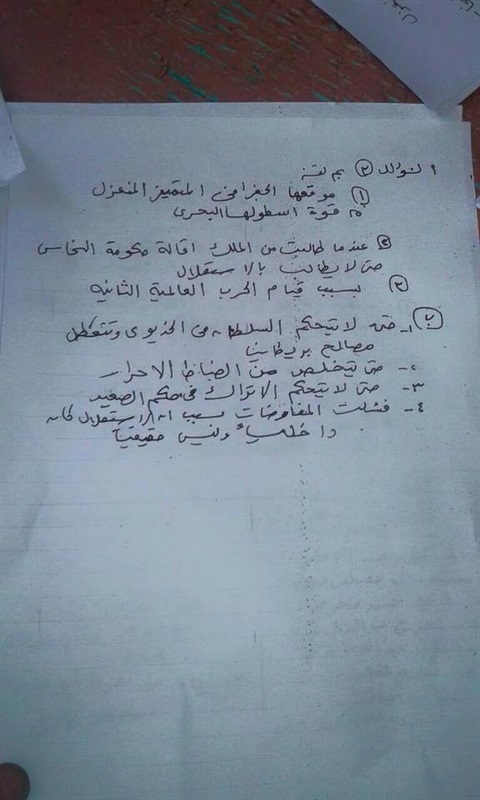 السؤال ③ بم تفسر
① موقعها الجغرافى المتميز المنعزل
قوة اسطولها البحرى
② عندما طالبت من الملك اقالة حكومة النحاس
حتى لا يطالب بالاستقلال
③ بسبب قيام الحرب العالمية الثانيه
١- حتى لا تتحكم السلطان فى الخديوى وتتعطل
مصالح بريطانيا
٢- حتى تتخلص من الضباط الاحرار
٣- حتى لا تتحكم الاتراك فى حكم الصعيد
٤- فشلت المفاوضات بسبب ان الاستقلال كان
داخلياً وليس حقيقياً